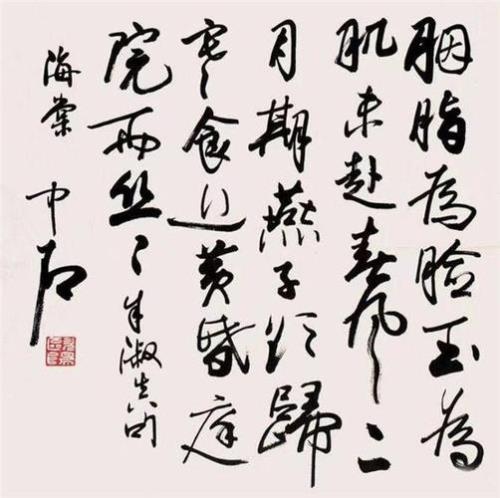 胭脂為臉玉為
肌未赴春風二
月期燕子欲歸
寒食近黄昏庭
院雨丝〻朱淑真
海棠
中石